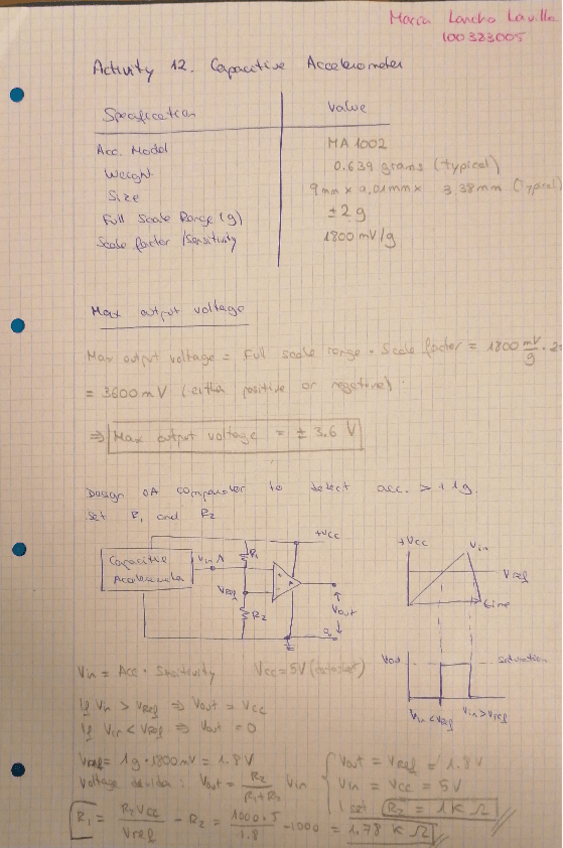 María Lancho Lavilla
100323005
Activity 12. Capacitive Accelerometer
Specification Value
Acc. Model MA 1002
Weight 0.639 grams (typical)
Size 9mm x 9,01mm x 3.38mm (Typical)
Full Scale Range (g) ±2g
Scale factor / Sensitivity 1800 mV/g
Max output voltage
Max output voltage = Full scale range · Scale factor = 1800 mV/g · 2
= 3600 mV (either positive or negative)
⇒ Max output voltage = ± 3.6 V
Design OA comparator to detect acc. > +1g.
Set R1 and R2
+Vcc
Capacitive
Accelerometer
Vin
R1
Vref
R2
Vout
+Vcc
Vin
Vref
time
Vout
saturation
Vin < Vref
Vin > Vref
Vin = Acc · Sensitivity Vcc = 5V (datasheet)
If Vin > Vref ⇒ Vout = Vcc
If Vin < Vref ⇒ Vout = 0
Vref = 1g · 1800mV = 1.8V
Voltage divider: Vout = R2/(R1+R2) Vin
Vout = Vref = 1.8V
Vin = Vcc = 5V
I set R2 = 1 K Ω
R1 = R2 Vcc / Vref - R2 = 1000·5 / 1.8 - 1000 = 1.78 K Ω